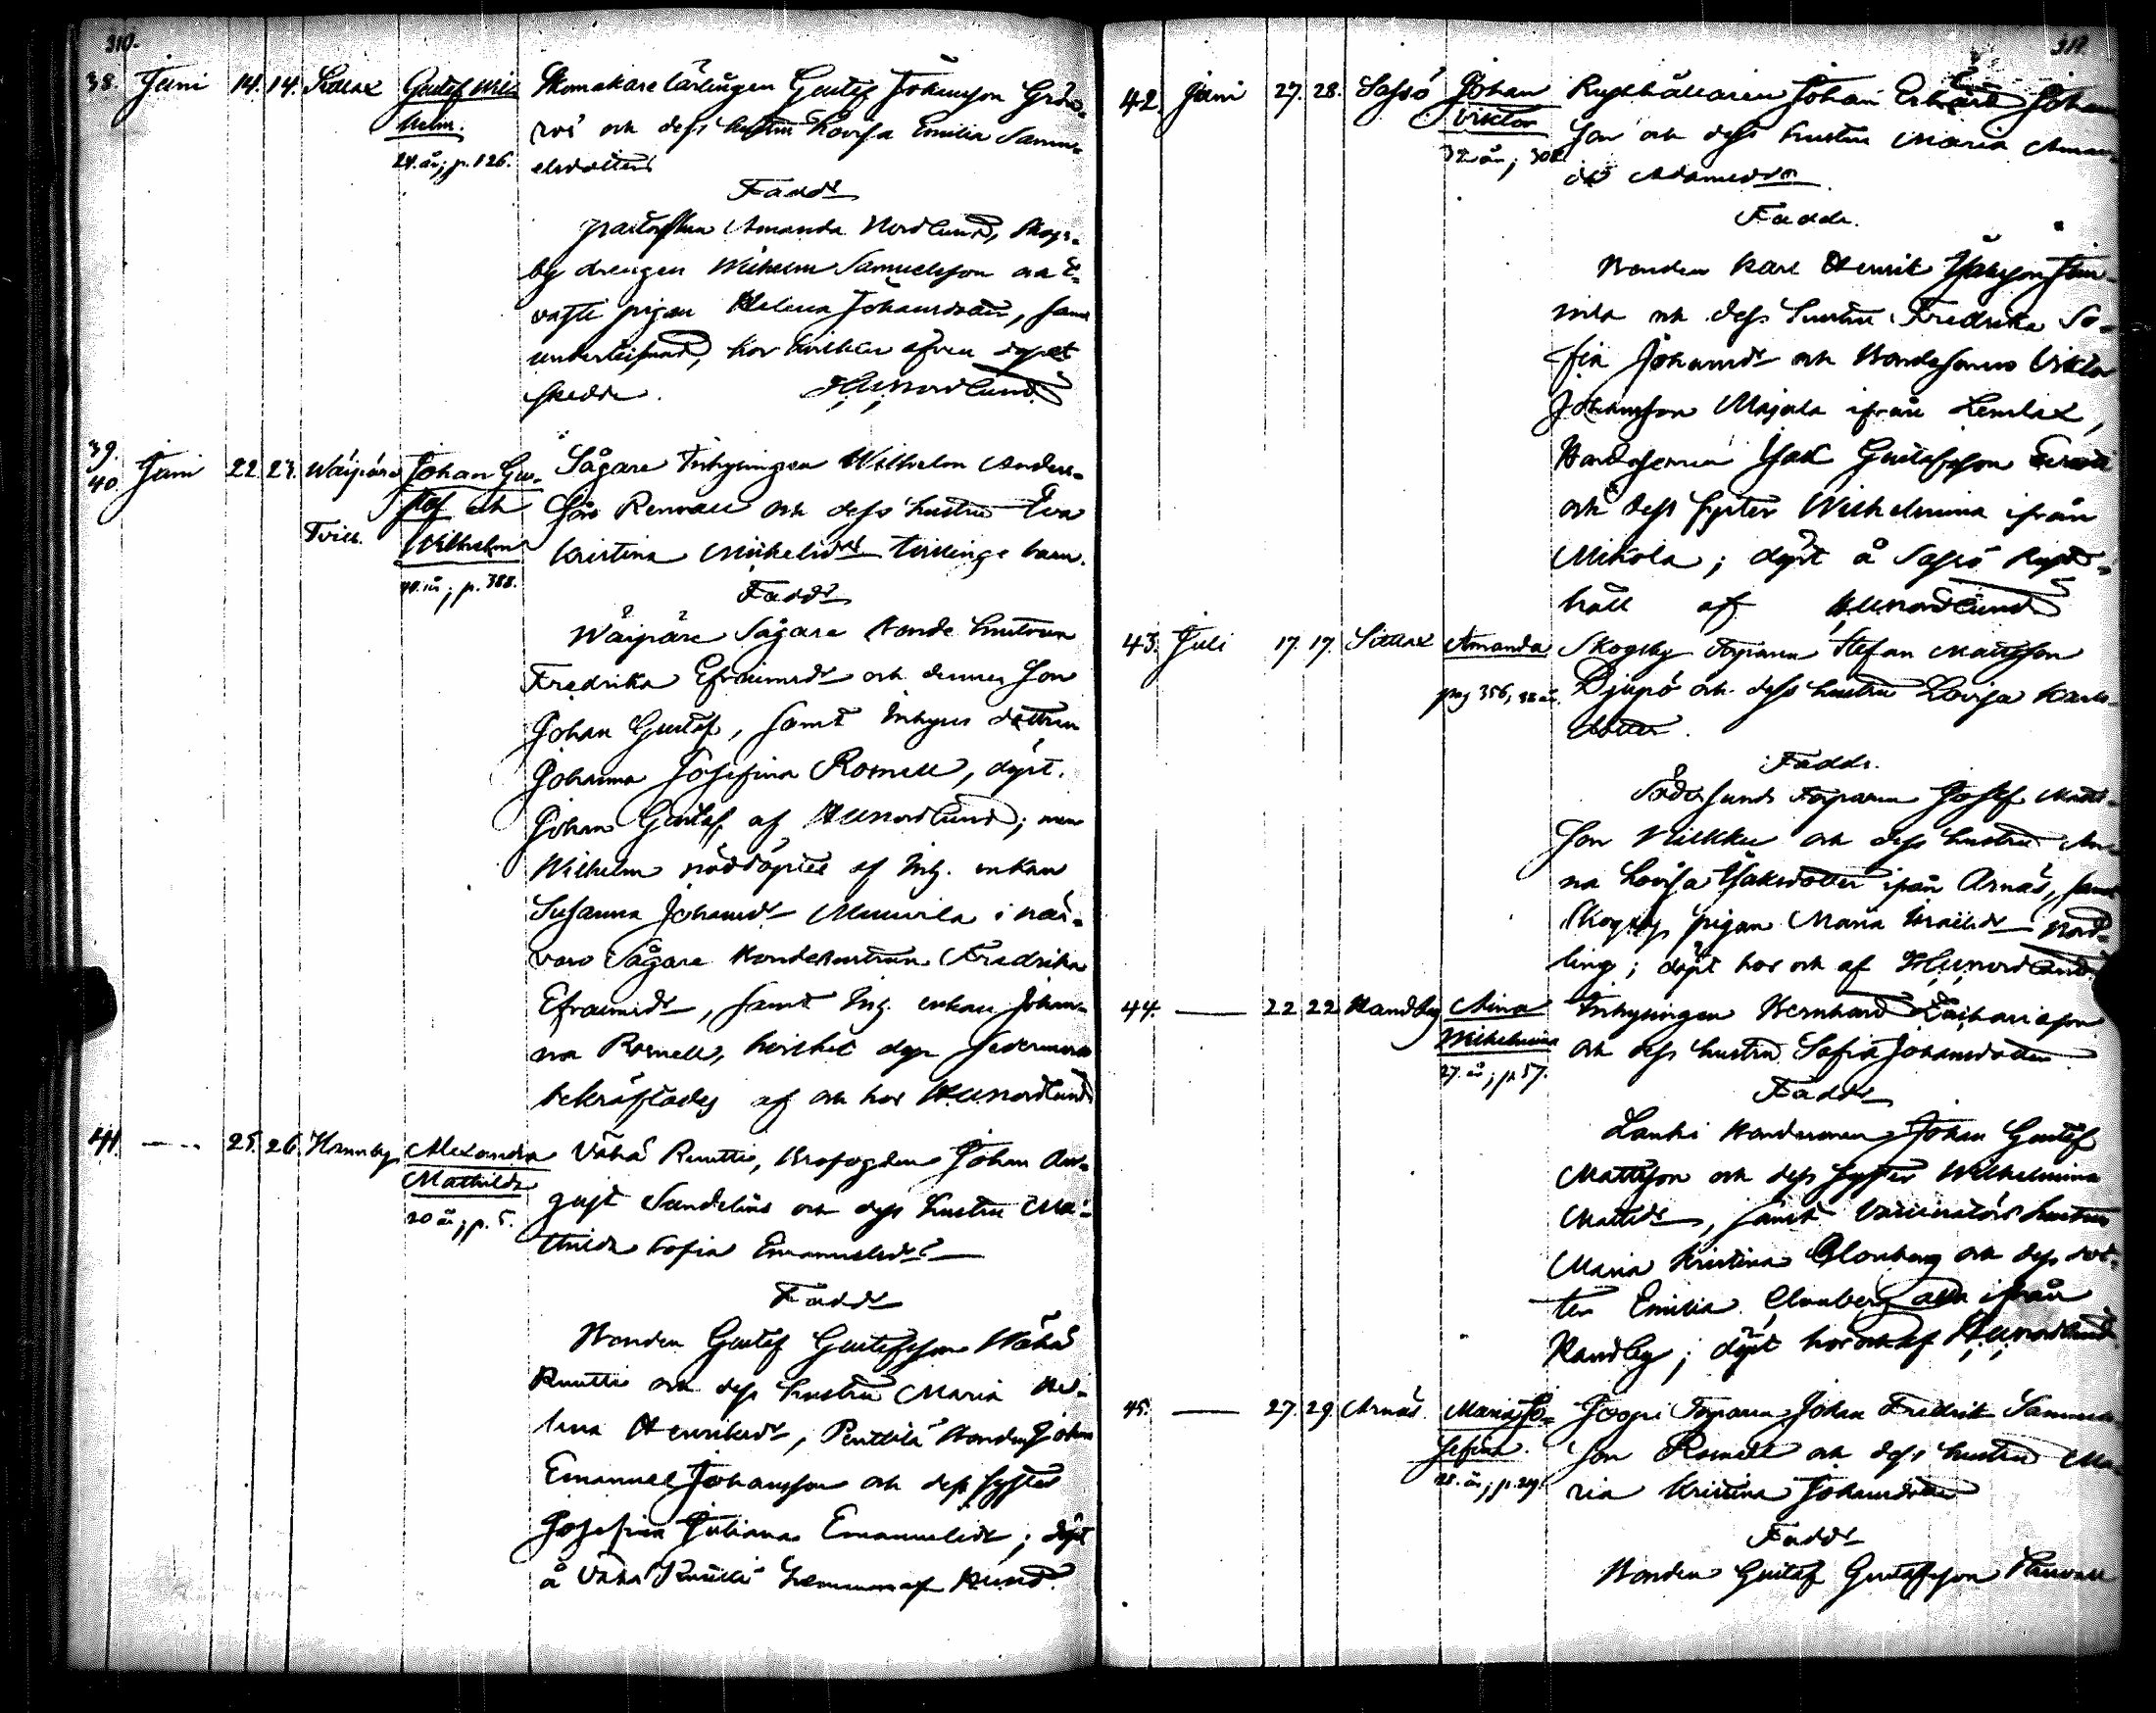 310.
38. Juni 14. 14. Sittlax Gustaf Wil-
helm.
24. år; p. 126.
Skomakare lärlingen Gustaf Johansson Grön-
roos och dess hustru Lovisa Emilia Samu-
elsdotter
Fadd.
Amanda Nordlund, Skogs-
by drengen Wilhelm Samuelsson och
pigan Helena Johansdotter, samt
undertecknad, hos hvilken äfven dopet
skedde. Nordlund
39.
40. Juni 22. 23. Waipäre Johan Gu-
staf och
Tvill. Wilhelm
40. år; p. 388.
Sågare Inhysingen Wilhelm Anders-
son Renvall och dess hustru Eva
Kristina Mickelsdr tvillinge barn.
Fadd.
Waipäre Sågare Bonde hustrun
Fredrika Efraimsdr och dennes son
Johan Gustaf, samt Inhyses dottren
Johanna Josefina Rosnell, döpt.
Johan Gustaf af Nordlund; men
Wilhelm nöddöptes af Inh. enkan
Susanna Johansdr i när-
varo Sågare Bondehustrun Fredrika
Efraimsdr, samt Inh. enkan Johan-
na Rosnell, hvilket dop sedermera
bekräftades af och hos Nordlund
41. — 25. 26. Kannby Alexandra
Mathilda
20 år; p. 5.
Vähä Ruutti, Brofogden Johan Au-
gust Sandelin och dess hustru Ma-
thilda Sofia Emanuelsdr
Fadd.
Bonden Gustaf Gustafsson Wähä
Ruutti och dess hustru Maria He-
lena Henriksdr, Penttilä Bonden Johan
Emanuel Johansson och dess syster
Josefina Juliana Emanuelsdr; döpt
å Vähä Ruutti hemman af Nund.
42. Juni 27. 28. Sassö Johan
Viktor
32 år;
Rusthållaren Johan Johans
son och dess hustru Maria Aman-
da Adamsdr
Fadd.
Bonden Karl Henrik Isaksson
och dess hustru Fredrika So-
fia Johansdr och Bondesonen Viktor
Johansson Majala ifrån Lemlax,
Bondesonen Isak Gustafsson
och dess syster Wilhelmina ifrån
Mikola; döpt å Sassö Rust-
håll af Nordlund
43. Juli 17. 17. Sittlax Amanda
pag 356,
Skogsby Torparen Stefan Mattsson
Djupö och dess hustru Lovisa Karls-
dotter.
Fadd.
Södersunds Torparen Josef Matts-
son och dess hustru An-
na Lovisa Isaksdotter ifrån Arnäs, samt
Skogsby pigan Maria Israelsdr Nord-
ling; döpt hos och af Nordlund
44. — 22 22 Randby Mina
Wilhelmina
27. år; p. 57.
Inhysingen Bernhard Zachariasson
och dess hustru Sofia Johansdotter
Fadd.
Lauki Bondesonen Johan Gustaf
Mattsson och dess syster Wilhelmina
Mattsdr, samt Vaccinatörs hustrun
Maria Kristina Clonberg och dess dot-
ter Emilia Clonberg alla ifrån
Randby; döpt hos och af Nordlund
45. — 27. 29. Arnäs Maria Jo-
sefina.
28. år; p. 29.
Torparen Johan Fredrik Samuels-
son Rosnell och dess hustru Ma-
ria Kristina Johansdotter
Fadd.
Bonden Gustaf Gustafsson